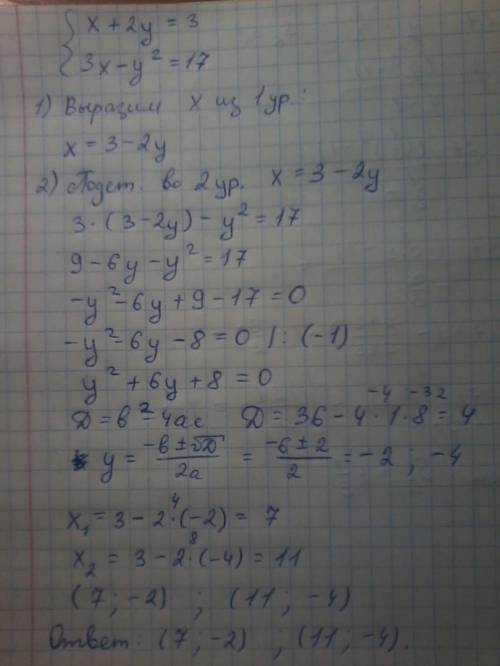 { x + 2y = 3
3x − y² = 17
1) Выразим x из 1 ур.:
x = 3 − 2y
2) Подст. во 2 ур. x = 3 − 2y
3·(3 − 2y) − y² = 17
9 − 6y − y² = 17
−y² − 6y + 9 − 17 = 0
−y² − 6y − 8 = 0 |: (−1)
y² + 6y + 8 = 0
−4 −32
D = b² − 4ac D = 36 − 4·1·8 = 4
y = (−b ± √D)/2a = (−6 ± 2)/2 = −2 ; −4
4
x₁ = 3 − 2·(−2) = 7
8
x₂ = 3 − 2·(−4) = 11
(7 ; −2) ; (11 ; −4)
Ответ: (7 ; −2) ; (11 ; −4).